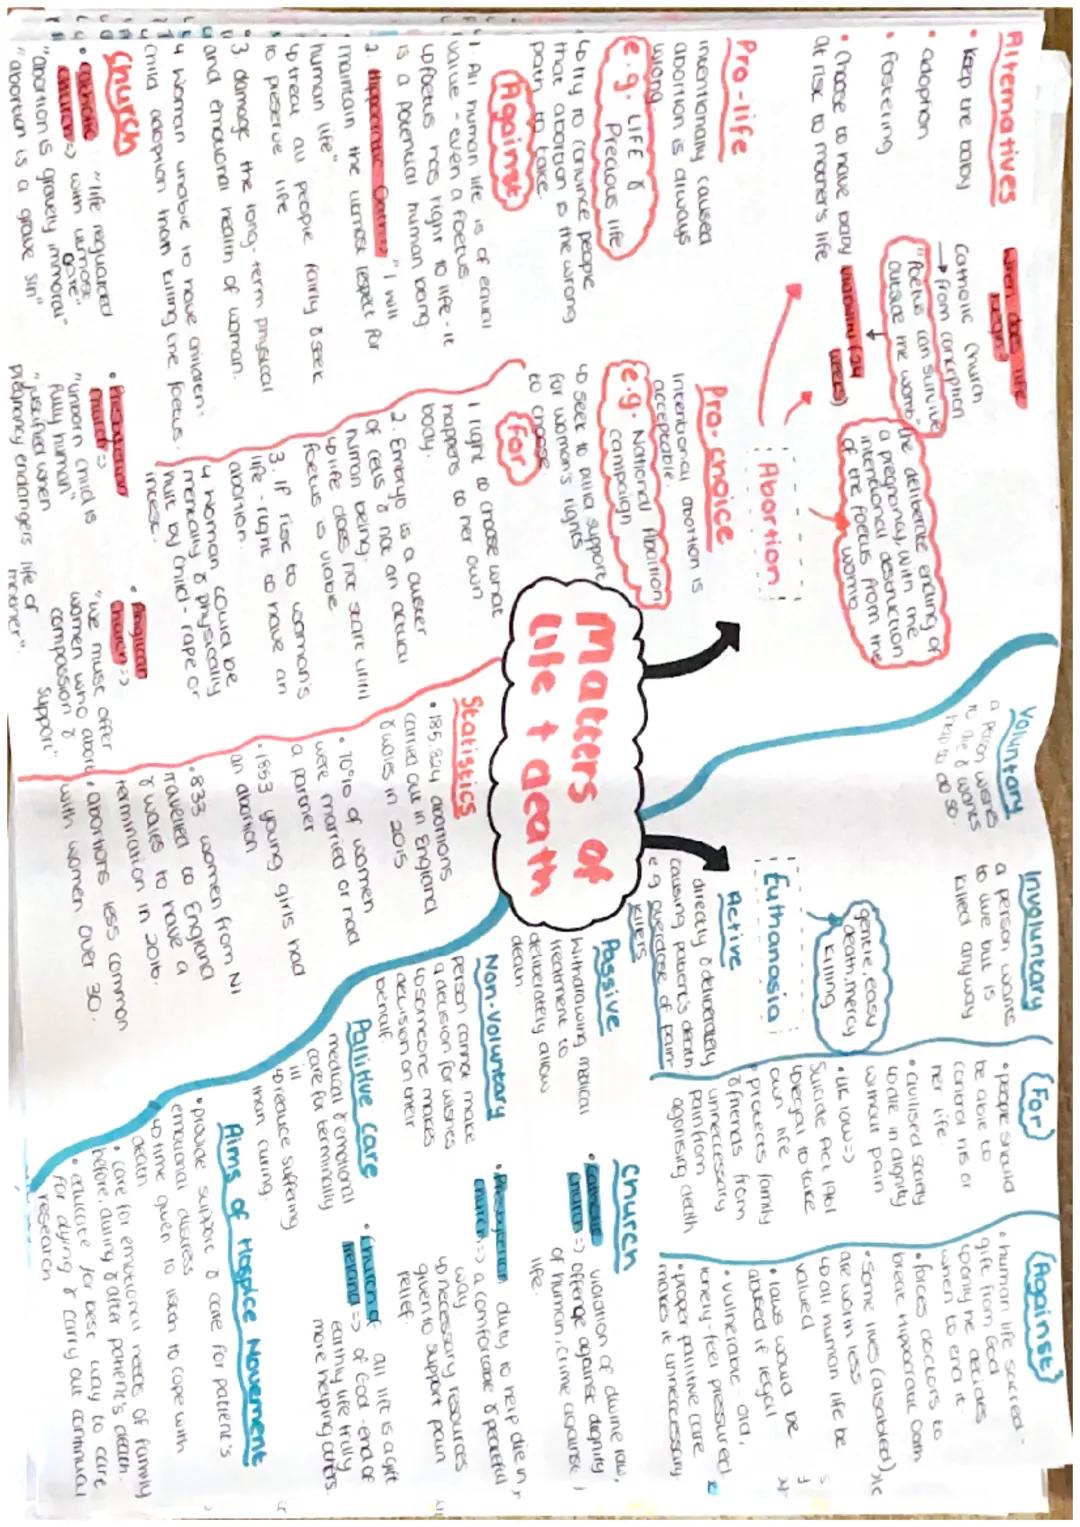 Matters of
life + death
Abortion
the deliberate ending of
a pregnancy, with the
intentional destruction
of the foetus from the
womb
Alternatives
• Keep the baby
• adoption
• Fostering
• Choose to have baby
at risk to mothers life
When does life
begin?
Catholic Church
→ from conception
"Foetus can survive
outside the womb"
viability (24
weeks)
Pro-life
intentionally caused
abortion is always
wrong
e.g. LIFE &
Precious life
↳ try to convince people
that abortion is the wrong
path to take.
Pro-choice
Intentional abortion is
acceptable.
e.g. National Abortion
campaign
↳ seek to build support
for woman's rights
to choose
Against
1. All human life is of equal
value - even a foetus.
↳ foetus has right to life - it
is a potential human being
2. Hippocratic Oath => "I will
maintain the utmost respect for
human life"
↳ treat all people fairly & seek
to preserve life
3. damage the long-term physical
and emotional health of woman.
4 Woman unable to have children:
child adoption than killing the foetus.
For
1 right to choose what
happens to her own
body.
2. Embryo is a cluster
of cells & not an actual
human being.
↳ life does not start until
foetus is viable
3. if risk to woman's
life - right to have an
abortion.
4 woman could be
mentally & physically
hurt by child - rape or
incest.
Church
• Catholic
Church => "life reguarded
with utmost
care"
"abortion is gravely immoral"
"abortion is a grave sin"
• Presbyterian
church =>
"unborn child is
fully human"
"justified when
pregnancy endangers life of
mother".
• Anglican
Church =>
"we must offer
women who abort
compassion &
support"
Statistics
• 185,824 abortions
carried out in England
& wales in 2015
• 70% of women
were married or had
a partner
• 1853 young girls had
an abortion
• 833 women from NI
travelled to England
& wales to have a
termination in 2016.
• abortions less common
with women over 30.
Euthanasia
gentle, easy
death, mercy
killing
Voluntary
a person wishes
to die & wants
help to do so.
Involuntary
a person wants
to live but is
killed anyway
Active
directly & deliberately
causing patient's death.
e.g overdose of pain
killers
Passive
Withdrawing medical
treatment to
deliberately allow
death
Non-Voluntary
person cannot make
a decision for wishes
↳ someone makes
decision on their
behalf.
Pallitive Care
medical & emotional
care for terminally
ill
↳ reduce suffering
than curing.
Aims of Hospice Movement
• provide support & care for patient's
emotional distress
↳ time given to listen to cope with
death
• care for emotional needs of family
before, during & after patient's death.
• educate for best way to care
for dying & carry out continual
research
For
• people should
be able to
control his or
her life.
• civilised society
↳ die in dignity
without pain
• UK law =>
Suicide Act 1961
↳ legal to take
own life
• protects family
& friends from
unneccessary
pain from
agonising death
Against
• human life sacred -
gift from God
↳ only he decides
when to end it.
• forces doctors to
break Hippocratic Oath
• Some lives (disabled)
are worth less
↳ all human life be
valued
• laws would be
abused if legal
• vulnerable - old,
lonely - feel pressured
• proper pallitive care
makes it unnecessary
Church
• Catholic
Church => violation of divine law,
offence against dignity
of human, crime against
life.
• Presbyterian
church => duty to help die in
a comfortable & peaceful
way
↳ necessary resources
given to support pain
relief.
• Church of
Ireland => all life is a gift
of God - end of
earthly life truly
more helping others.